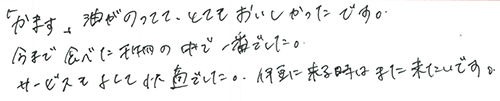 「かます、油がのってて、とてもおいしかったです。
今まで食べた中で一番でした。
サービスもよくて快適でした。伊豆に来る時はまた来たいです。